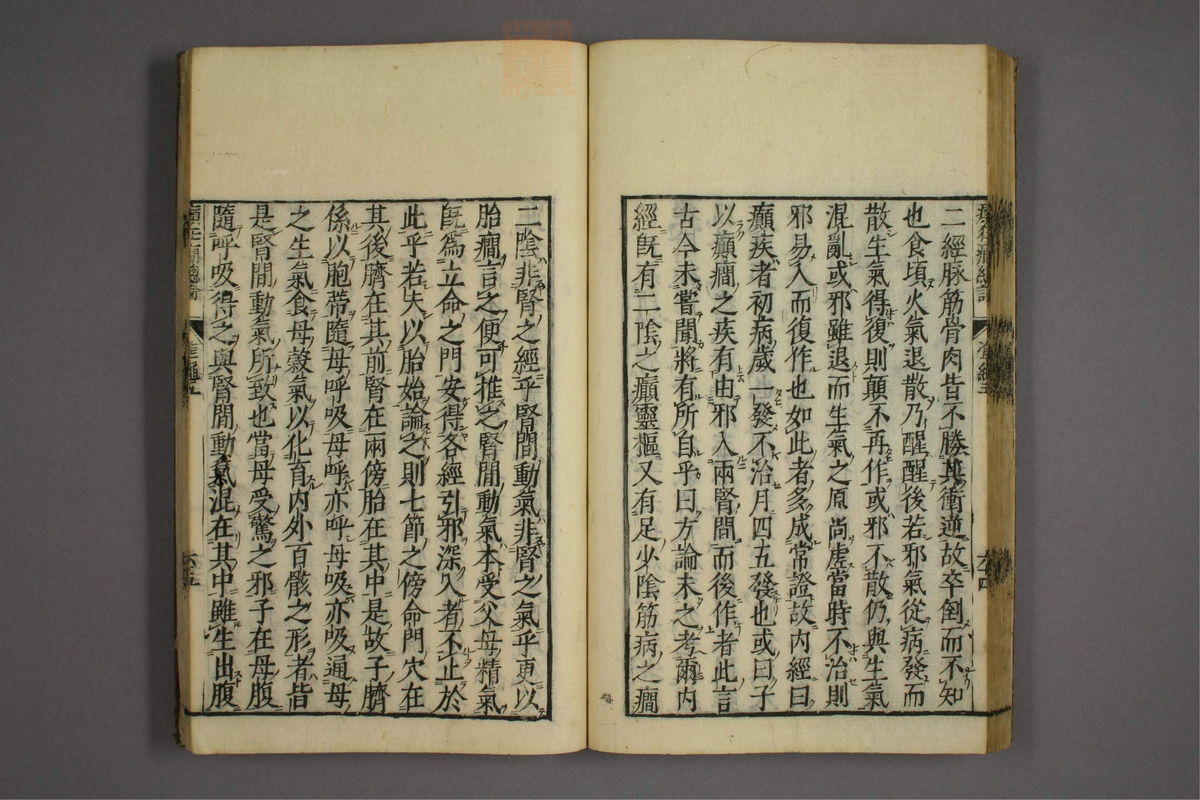 二經脉筋骨肉皆不勝其衝逆故卒倒而不知
也食頃火氣退散乃醒醒後若邪氣從病發而
散生氣得復則顛不再作或邪不散仍與生氣
混亂或邪雖退而生氣之原尚虛當時不治則
邪易入而復作也如此者多成常證故内經曰
癲疾者初病歲一發不治月四五發也或曰子
以癲癇之疾有由邪入兩腎間而後作者此言
古今未嘗聞將有所自乎曰方論未之考爾内
經既有二陰之癲靈樞又有足少陰筋病之癇
二陰非腎之經乎腎間動氣非腎之氣乎更以
胎癇言之便可推之腎間動氣本受父母精氣
既爲立命之門安得各經引邪深入者不止於
此乎若夫以胎始論之則七節之傍命門穴在
其後臍在其前腎在兩傍胎在其中是故子臍
係以胞蒂隨母呼吸母呼亦呼母吸亦吸通母
之生氣食母穀氣以化育内外百骸之形者皆
是腎間動氣所致也當母受驚之邪子在母腹
隨呼吸得之與腎間動氣混在其中雖生出腹